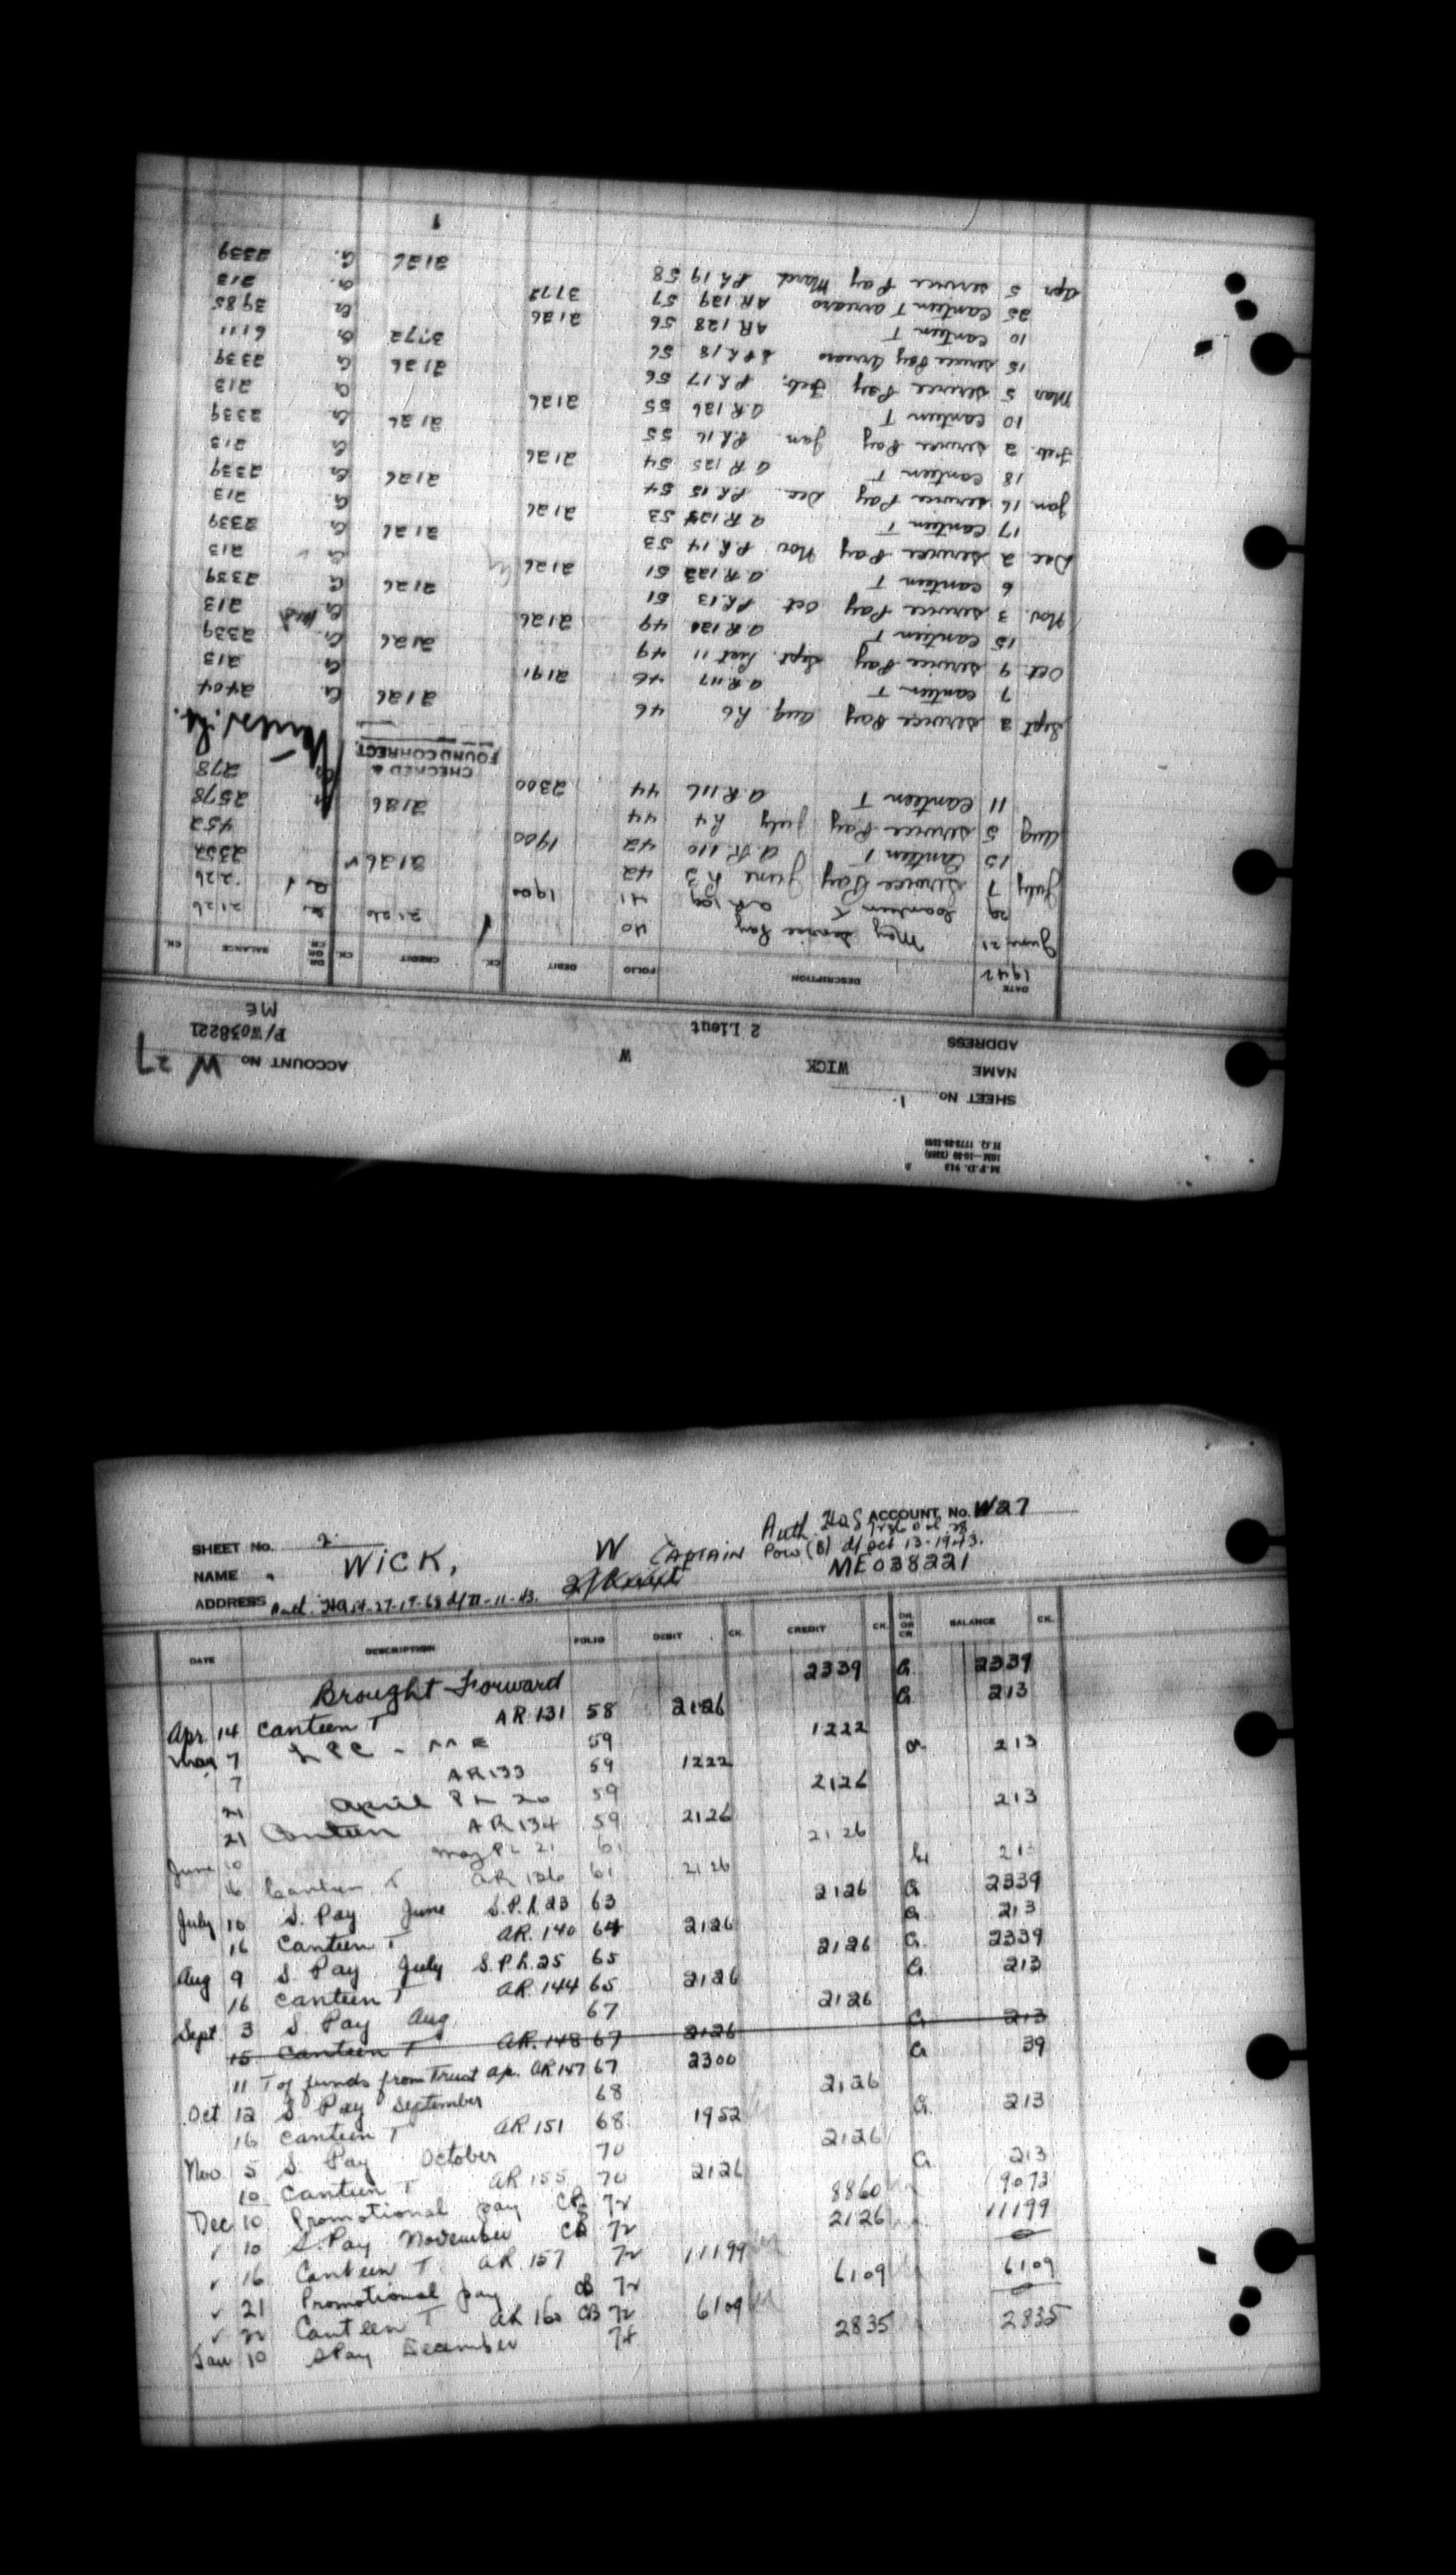 M.F.D. 912
H.Q. 1772-39-1581
SHEET No. 1.
NAME WICK W ACCOUNT No W 27
ADDRESS 2 Lieut P/W038221
ME
DATE DESCRIPTION FOLIO DEBIT CK. CREDIT CK. DR. OR CR. BALANCE CK.
1942
June 21 May Service Pay 40 2126 2126
29 Canteen T AR 109 41 1900 226
July 7 Service Pay June L 3 42 2126 2352
15 Canteen T A.R. 110 42 1900 452
Aug 5 Service Pay July L4 44 2126 2578
11 Canteen T A.R. 116 44 2300 278
CHECKED & FOUND CORRECT
Sept 2 Service Pay Aug. L6 46 2126 Cr 2404
7 Canteen T A.R. 117 46 2191 Cr 213
Oct 9 Service Pay Sept. List 11 49 2126 Cr. 2339
15 Canteen T A.R. 120 49 2126 Cr 213
Nov. 3 Service Pay Oct P.L. 13 51 2126 Cr 2339
6 Canteen T A.R. 122 51 2126 Cr 213
Dec 2 Service Pay Nov P.L. 14 53 2126 Cr 2339
17 Canteen T A.R. 124 53 2126 Cr 213
Jan 16 Service Pay Dec. P.L. 15 54 2126 Cr 2339
18 Canteen T A.R. 125 54 2126 Cr 213
Feb. 2 Service Pay Jan P.L. 16 55 2126 Cr 2339
10 Canteen T A.R. 126 55 2126 Cr 213
Mar 5 Service Pay Feb. P.L. 17 56 2126 Cr 2339
15 Service Pay Arrears S.P.L. 18 56 3772 Cr 6111
10 Canteen T AR 128 56 2126 Cr 3985
25 Canteen T arrears AR. 129 57 3772 Cr. 213
Apr 5 Service Pay March P.L. 19 58 2126 Cr. 2339
SHEET No. 2. Auth. ACCOUNT, No. W27
NAME WICK, W CAPTAIN Pow (8) d/ Oct 13-1943.
ADDRESS Auth. HQ 54-27-17-68 d/ 11-11-43. 2/Lieut ME038221
DATE DESCRIPTION FOLIO DEBIT CK. CREDIT CK. DR. OR CR. BALANCE CK.
Brought Forward 2339 Cr. 2339
Apr. 14 Canteen T AR. 131 58 2126 Cr 213
May 7 59 1222
7 AR 133 59 1222 Cr 213
21 April PL 20 59 2126
21 Canteen AR 134 59 2126 213
June 10 May PL 21 61 2126
16 Canteen T AR 136 61 2126 Cr 213
July 10 S. Pay June S.P.L. 23 63 2126 Cr 2339
16 Canteen T AR. 140 64 2126 Cr 213
Aug 9 S. Pay July S.P.L. 25 65 2126 Cr. 2339
16 Canteen T AR. 144 65 2126 Cr. 213
Sept. 3 S. Pay Aug. 67 2126
15 Canteen T AR. 148 67 2126 Cr 213
11 T of funds from Trust ap. AR 147 67 2300 Cr 39
Oct 12 S. Pay September 68 2126
16 Canteen T AR. 151 68 1952 Cr. 213
Nov. 5 S. Pay October 70 2126
10 Canteen T AR 155 70 2126 Cr. 213
Dec 10 Promotional pay CB 72 8860 9073
✓ 10 S. Pay November CB 72 2126 11199
✓ 16 Canteen T. AR. 157 72 11199
✓ 21 Promotional pay CB 72 6109 6109
✓ 22 Canteen T AR 160 CB 72 6109
Jan 10 S Pay December 74 2835 2835